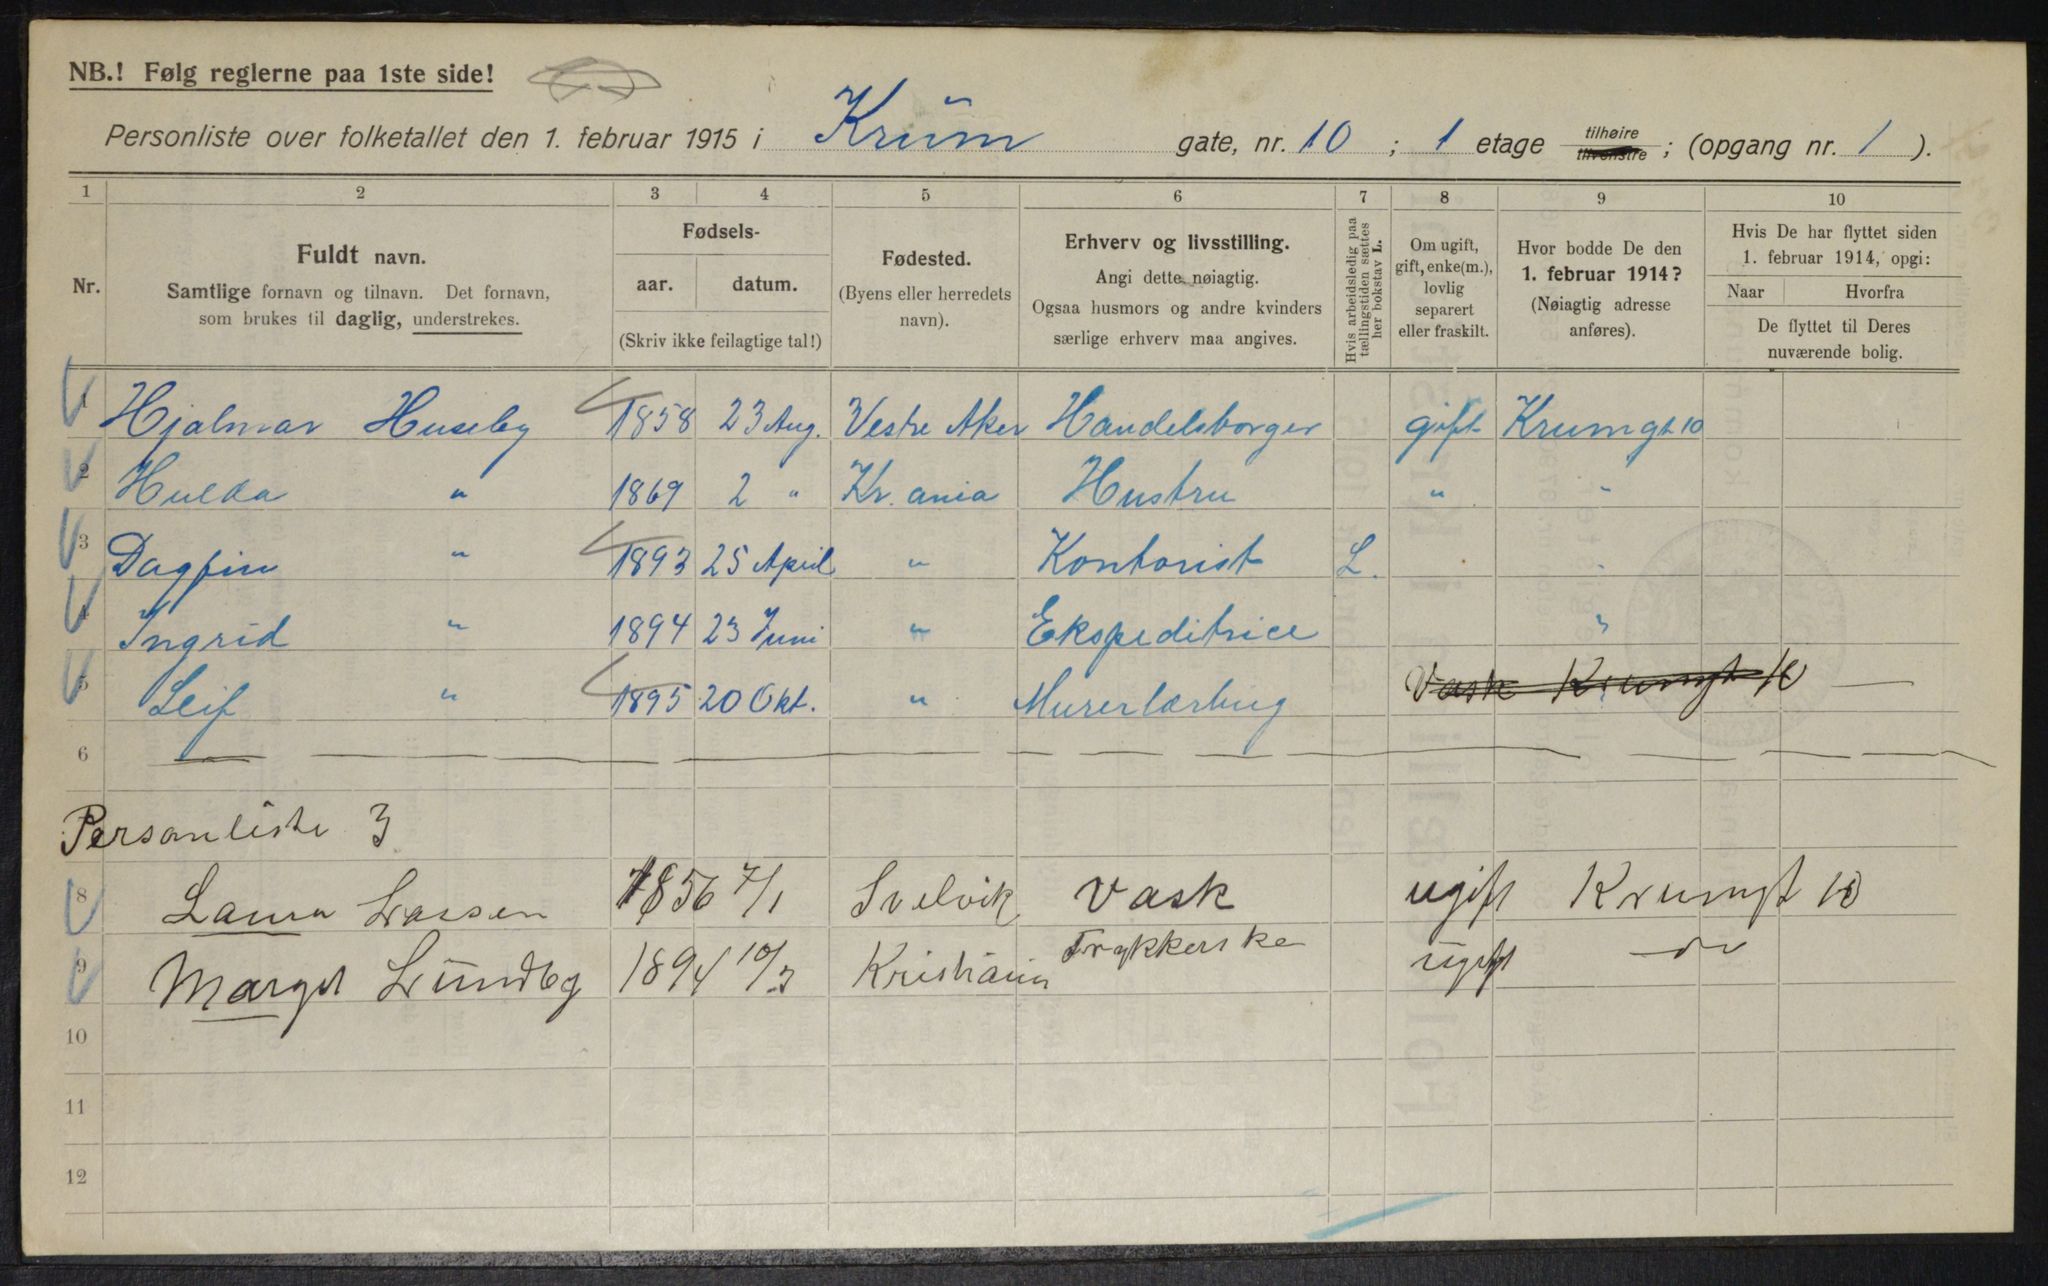 NB.! Følg reglerne paa 1ste side!
Personliste over folketallet den 1. februar 1915 i Krüm gate, nr. 10 ; 1 etage tilhøire tilvenstre ; (opgang nr. 1 ).
1 2 3 4 5 6 7 8 9 10
Nr.
Fuldt navn.
Samtlige fornavn og tilnavn. Det fornavn,
som brukes til daglig, understrekes.
Fødsels-
aar. datum.
(Skriv ikke feilagtige tal!)
Fødested.
(Byens eller herredets
navn).
Erhverv og livsstilling.
Angi dette nøiagtig.
Ogsaa husmors og andre kvinders
særlige erhverv maa angives.
Hvis arbeidsledig paa
tællingstiden sættes
her bokstav L.
Om ugift,
gift, enke(m.),
lovlig
separert
eller fraskilt.
Hvor bodde De den
1. februar 1914?
(Nøiagtig adresse
anføres).
Hvis De har flyttet siden
1. februar 1914, opgi:
Naar Hvorfra
De flyttet til Deres
nuværende bolig.
1 Hjalmar Huseby 1858 23 Aug. Vestre Aker Handelsborger gift Krumgt 10
2 Hulda " 1869 2 " Kr.ania Hustru " "
3 Dagfin " 1893 25 April " Kontorist L. "
4 Ingrid " 1894 23 Juni " Ekspeditrice "
5 Leif " 1895 20 Okt. " Murerlærling Vask Krumgt 10 —
6
Personliste 3
8 Laura Larssen 1856 7/1 Svelvik Vask ugift Krumgt 10
9 Margit Lundby 1894 10/3 Kristiania Trykkerske ugift do
10
11
12